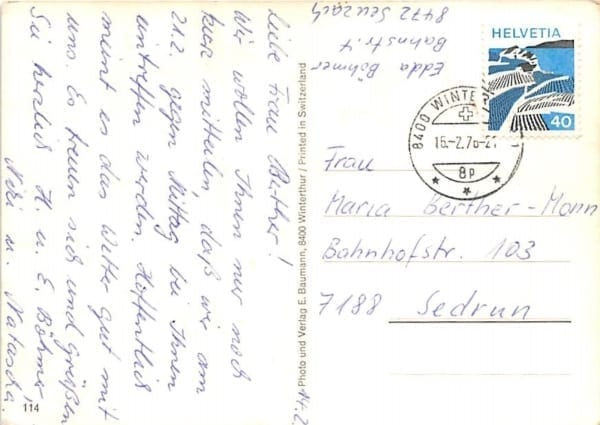 Liebe Frau Berther!
Wir wollen Ihnen nur noch
kurz mitteilen daß wir am
21.2. gegen Mittag bei Ihnen
eintreffen werden. Hoffentlich
meint es das Wetter gut mit
uns. Es freuen sich und grüßen
Sie herzlich H. u. E. Böhmer,
u. Natascha.
14.2.
114
Photo und Verlag E. Baumann, 8400 Winterthur / Printed in Switzerland
Edda Böhmer
Bahnstr. 4
8472 Seuzach
HELVETIA
40
8400 WINTERT
15.-2.76-21
8p
Frau
Maria Berther-Monn
Bahnhofstr. 103
7188 Sedrun